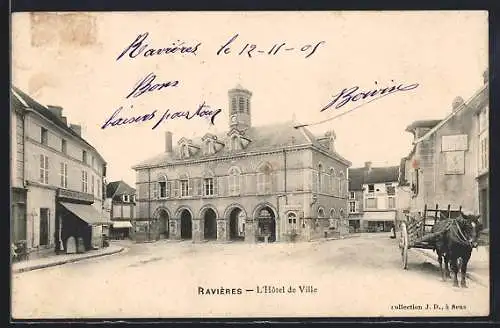 Ravières le 12-11-05
Bons
baisers pour tous
RAVIÈRES — L'Hôtel de Ville
collection J. D., à Sens